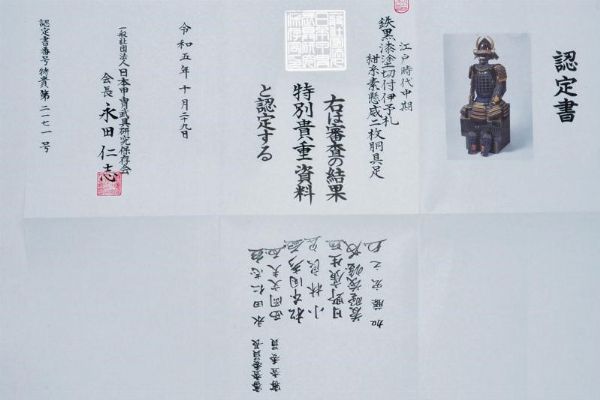 認定書
江戸時代中期
鉄黒漆塗切付伊予札
紺糸素懸威二枚胴具足
右は審査の結果
特別貴重資料
と認定する
令和五年十月二十九日
一般社団法人日本甲冑武具研究保存会
会長 永田仁志
認定書番号特貴第二一七一号
審査委員長 永田仁志
審査委員 西岡文夫